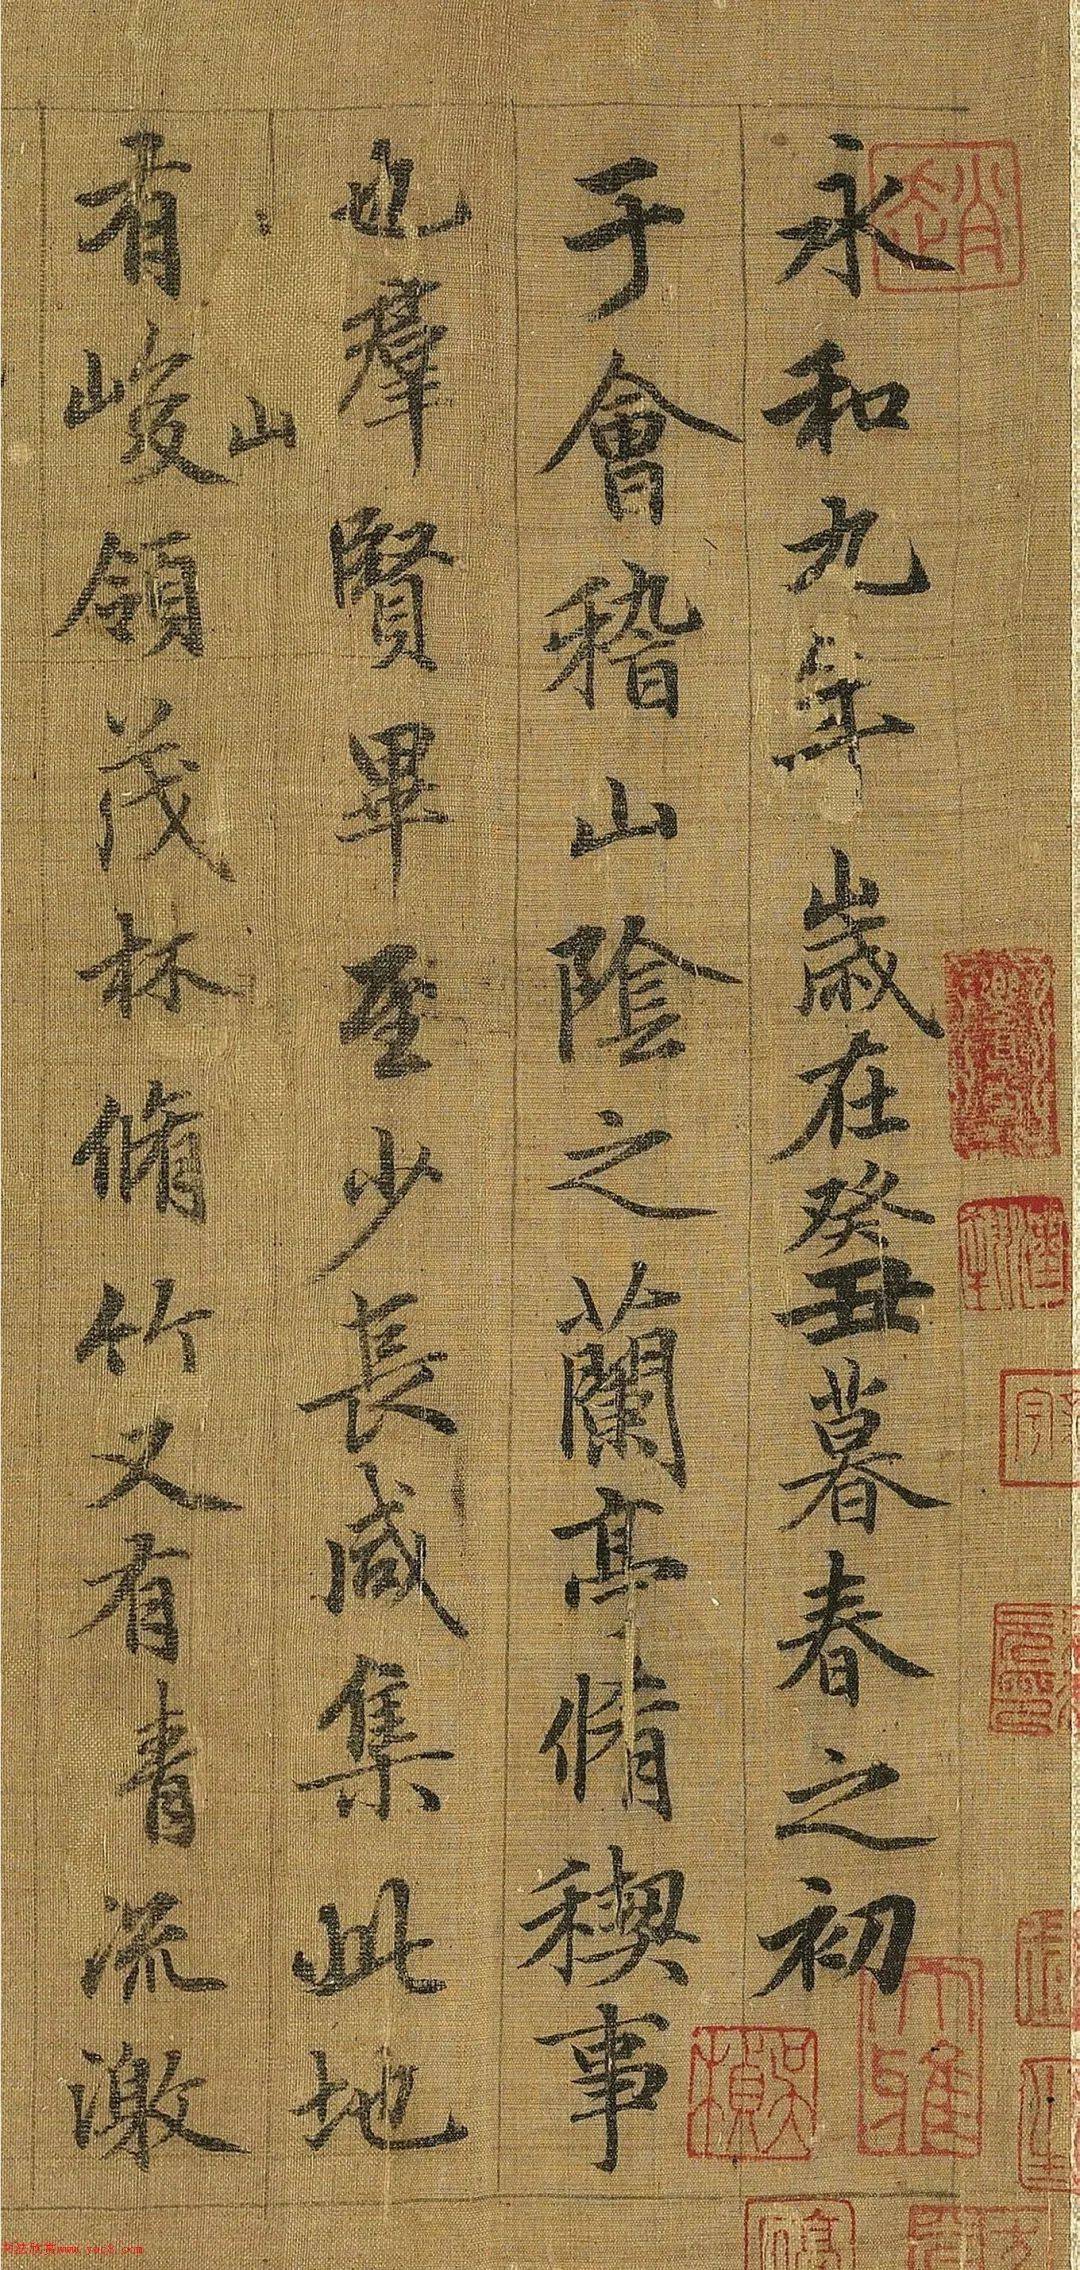 永和九年歲在癸丑暮春之初
于會稽山陰之蘭亭脩稧事
也羣賢畢至少長咸集此地
山
有峻領茂林脩竹又有青流激
大雅
www.yac8.com